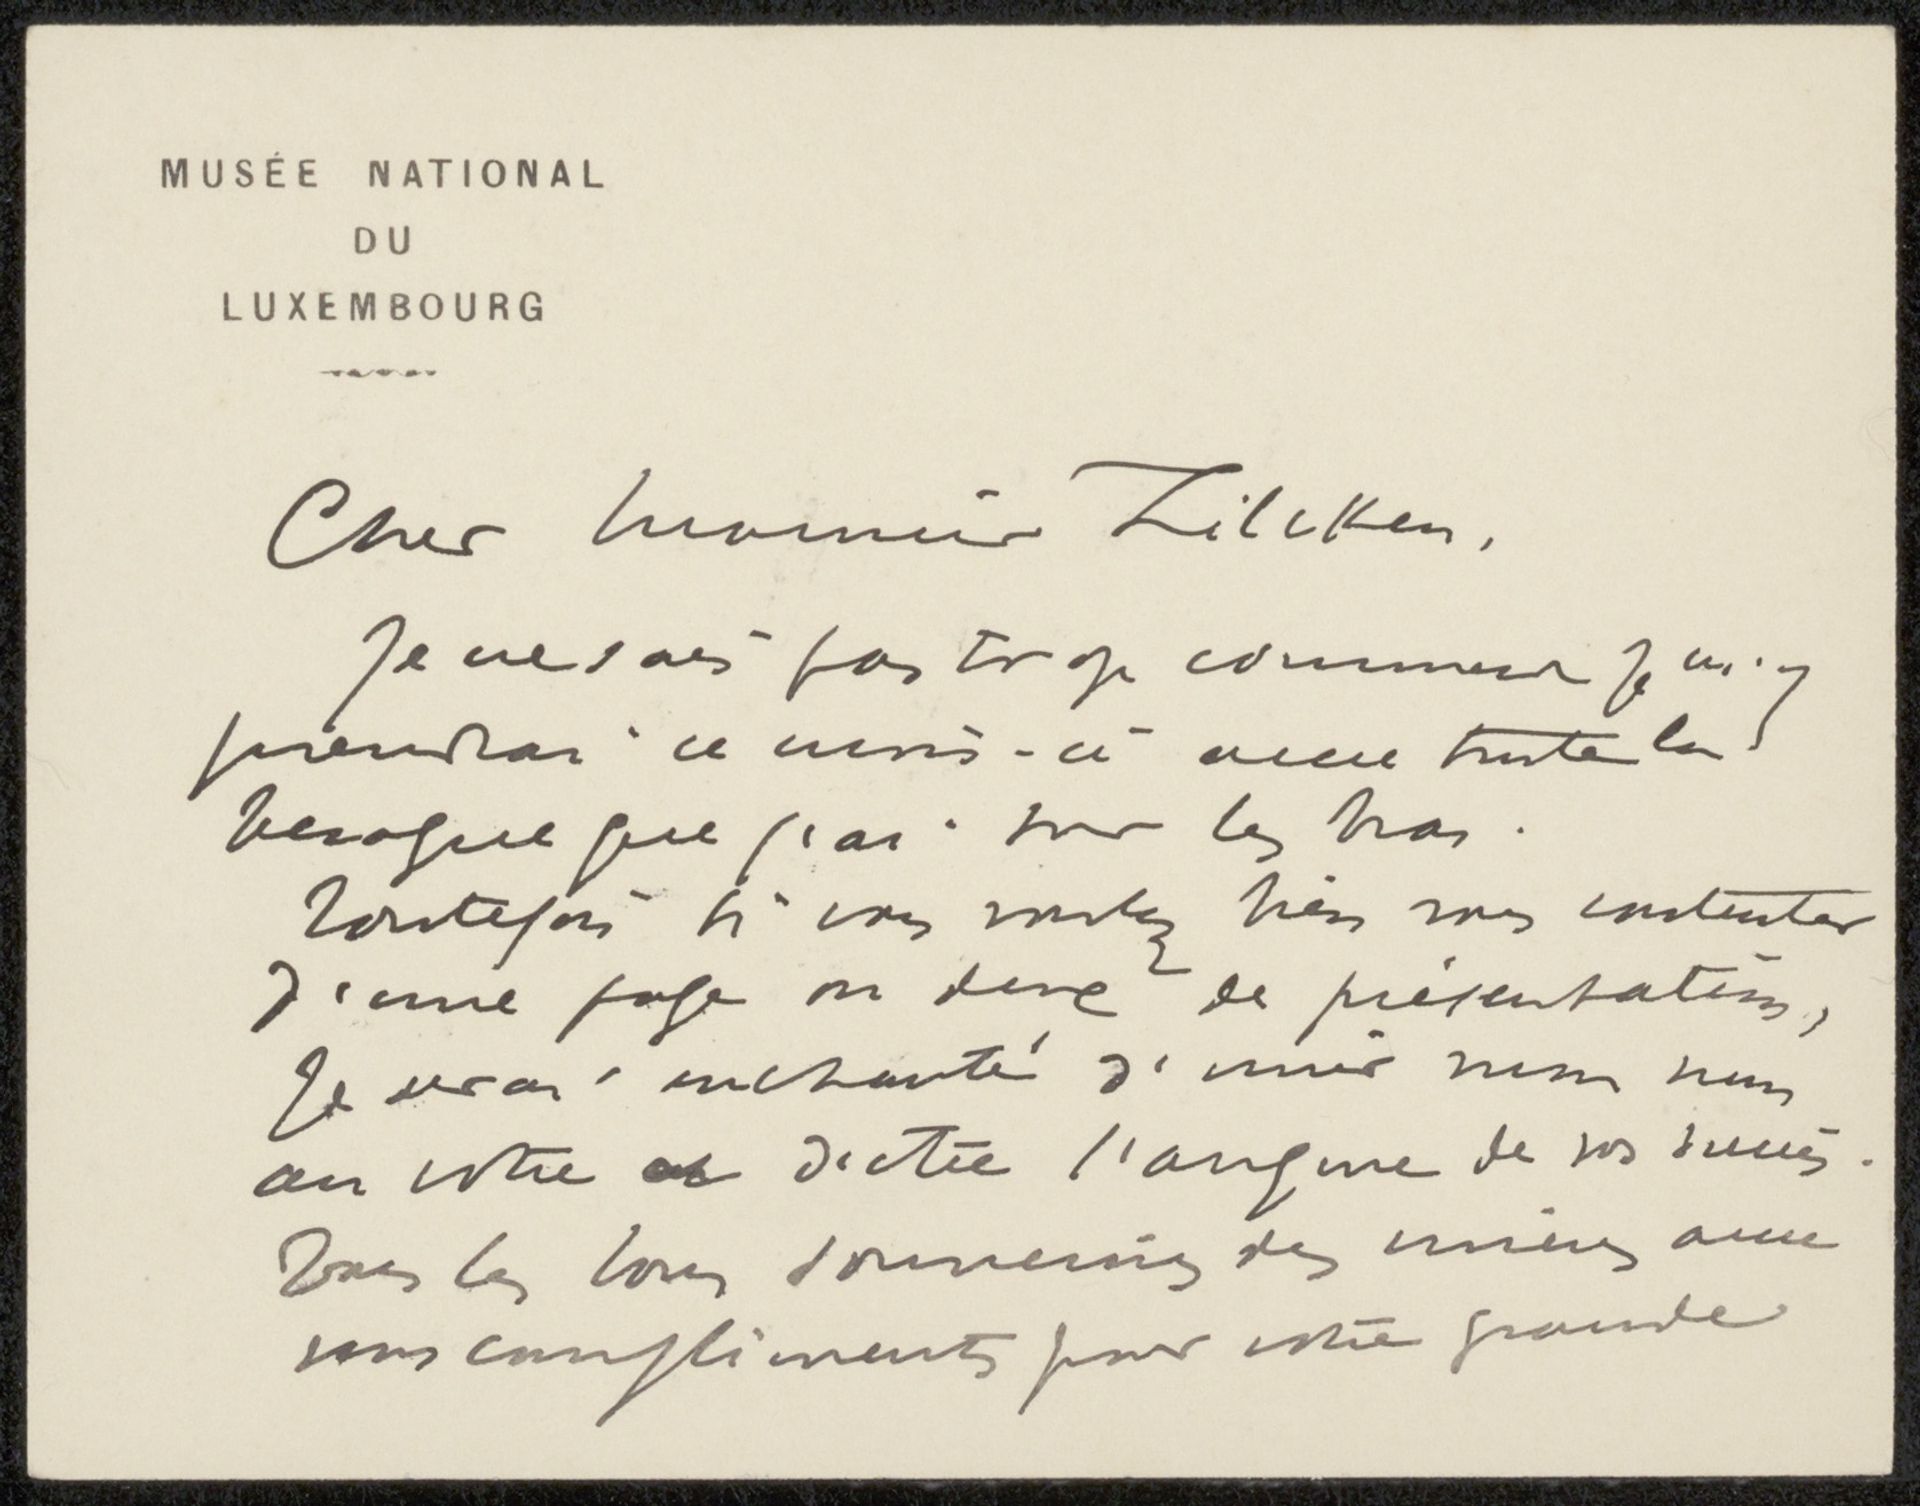 MUSÉE NATIONAL
DU
LUXEMBOURG
Cher monsieur Zilcken,
Je ne sais pas trop comment je m'y
prendrai ce mois-ci avec toute la
besogne que j'ai sur les bras.
Toutefois si vous voulez bien vous contenter
d'une page ou deux de présentation,
Je serai enchanté d'unir mon nom
au vôtre
de vos succès.
Tous les bons souvenirs des miens avec
mes compliments pour votre grande